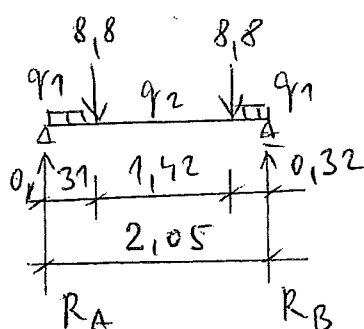 8,8 8,8
q1 q2 q1
0,31 1,42 0,32
2,05
RA RB